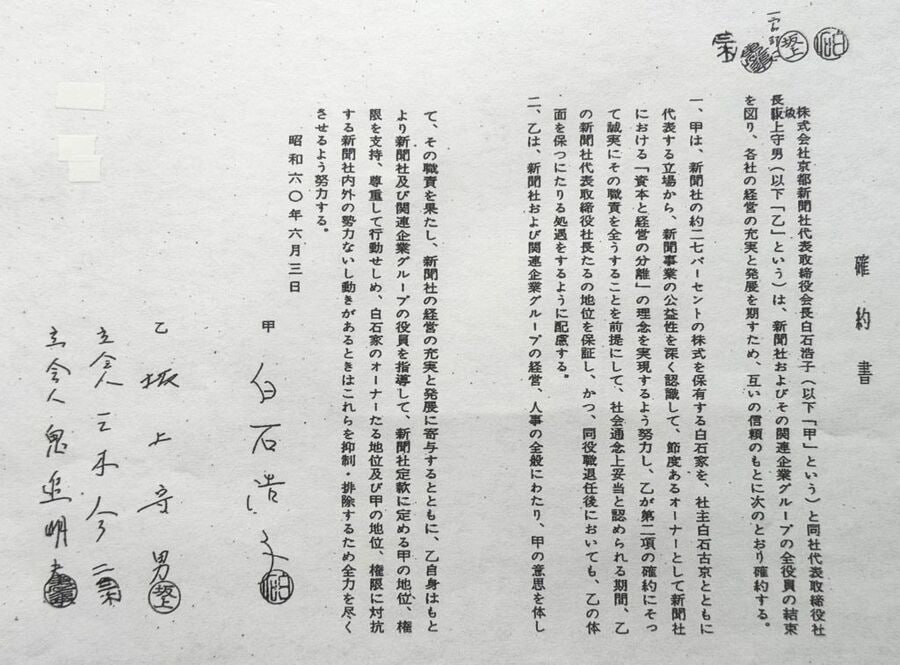 確約書
株式会社京都新聞社代表取締役会長白石浩子（以下「甲」という）と同社代表取締役社
長坂上守男（以下「乙」という）は、新聞社およびその関連企業グループの全役員の結束
を図り、各社の経営の充実と発展を期すため、互いの信頼のもとに次のとおり確約する。
一、甲は、新聞社の約二七パーセントの株式を保有する白石家を、社主白石古京とともに
代表する立場から、新聞事業の公益性を深く認識して、節度あるオーナーとして新聞社
における「資本と経営の分離」の理念を実現するよう努力し、乙が第二項の確約にそっ
て誠実にその職責を全うすることを前提にして、社会通念上妥当と認められる期間、乙
の新聞社代表取締役社長たるの地位を保証し、かつ、同役職退任後においても、乙の体
面を保つにたりる処遇をするように配慮する。
二、乙は、新聞社および関連企業グループの経営、人事の全般にわたり、甲の意思を体し
て、その職責を果たし、新聞社の経営の充実と発展に寄与するとともに、乙自身はもと
より新聞社及び関連企業グループの役員を指導して、新聞社定款に定める甲の地位、権
限を支持、尊重して行動せしめ、白石家のオーナーたる地位及び甲の地位、権限に対抗
する新聞社内外の勢力ないし動きがあるときはこれらを抑制・排除するため全力を尽く
させるよう努力する。
昭和六〇年六月三日
甲 白石浩子
乙 坂上守男
立会人 三木今二
立会人 鬼追明夫